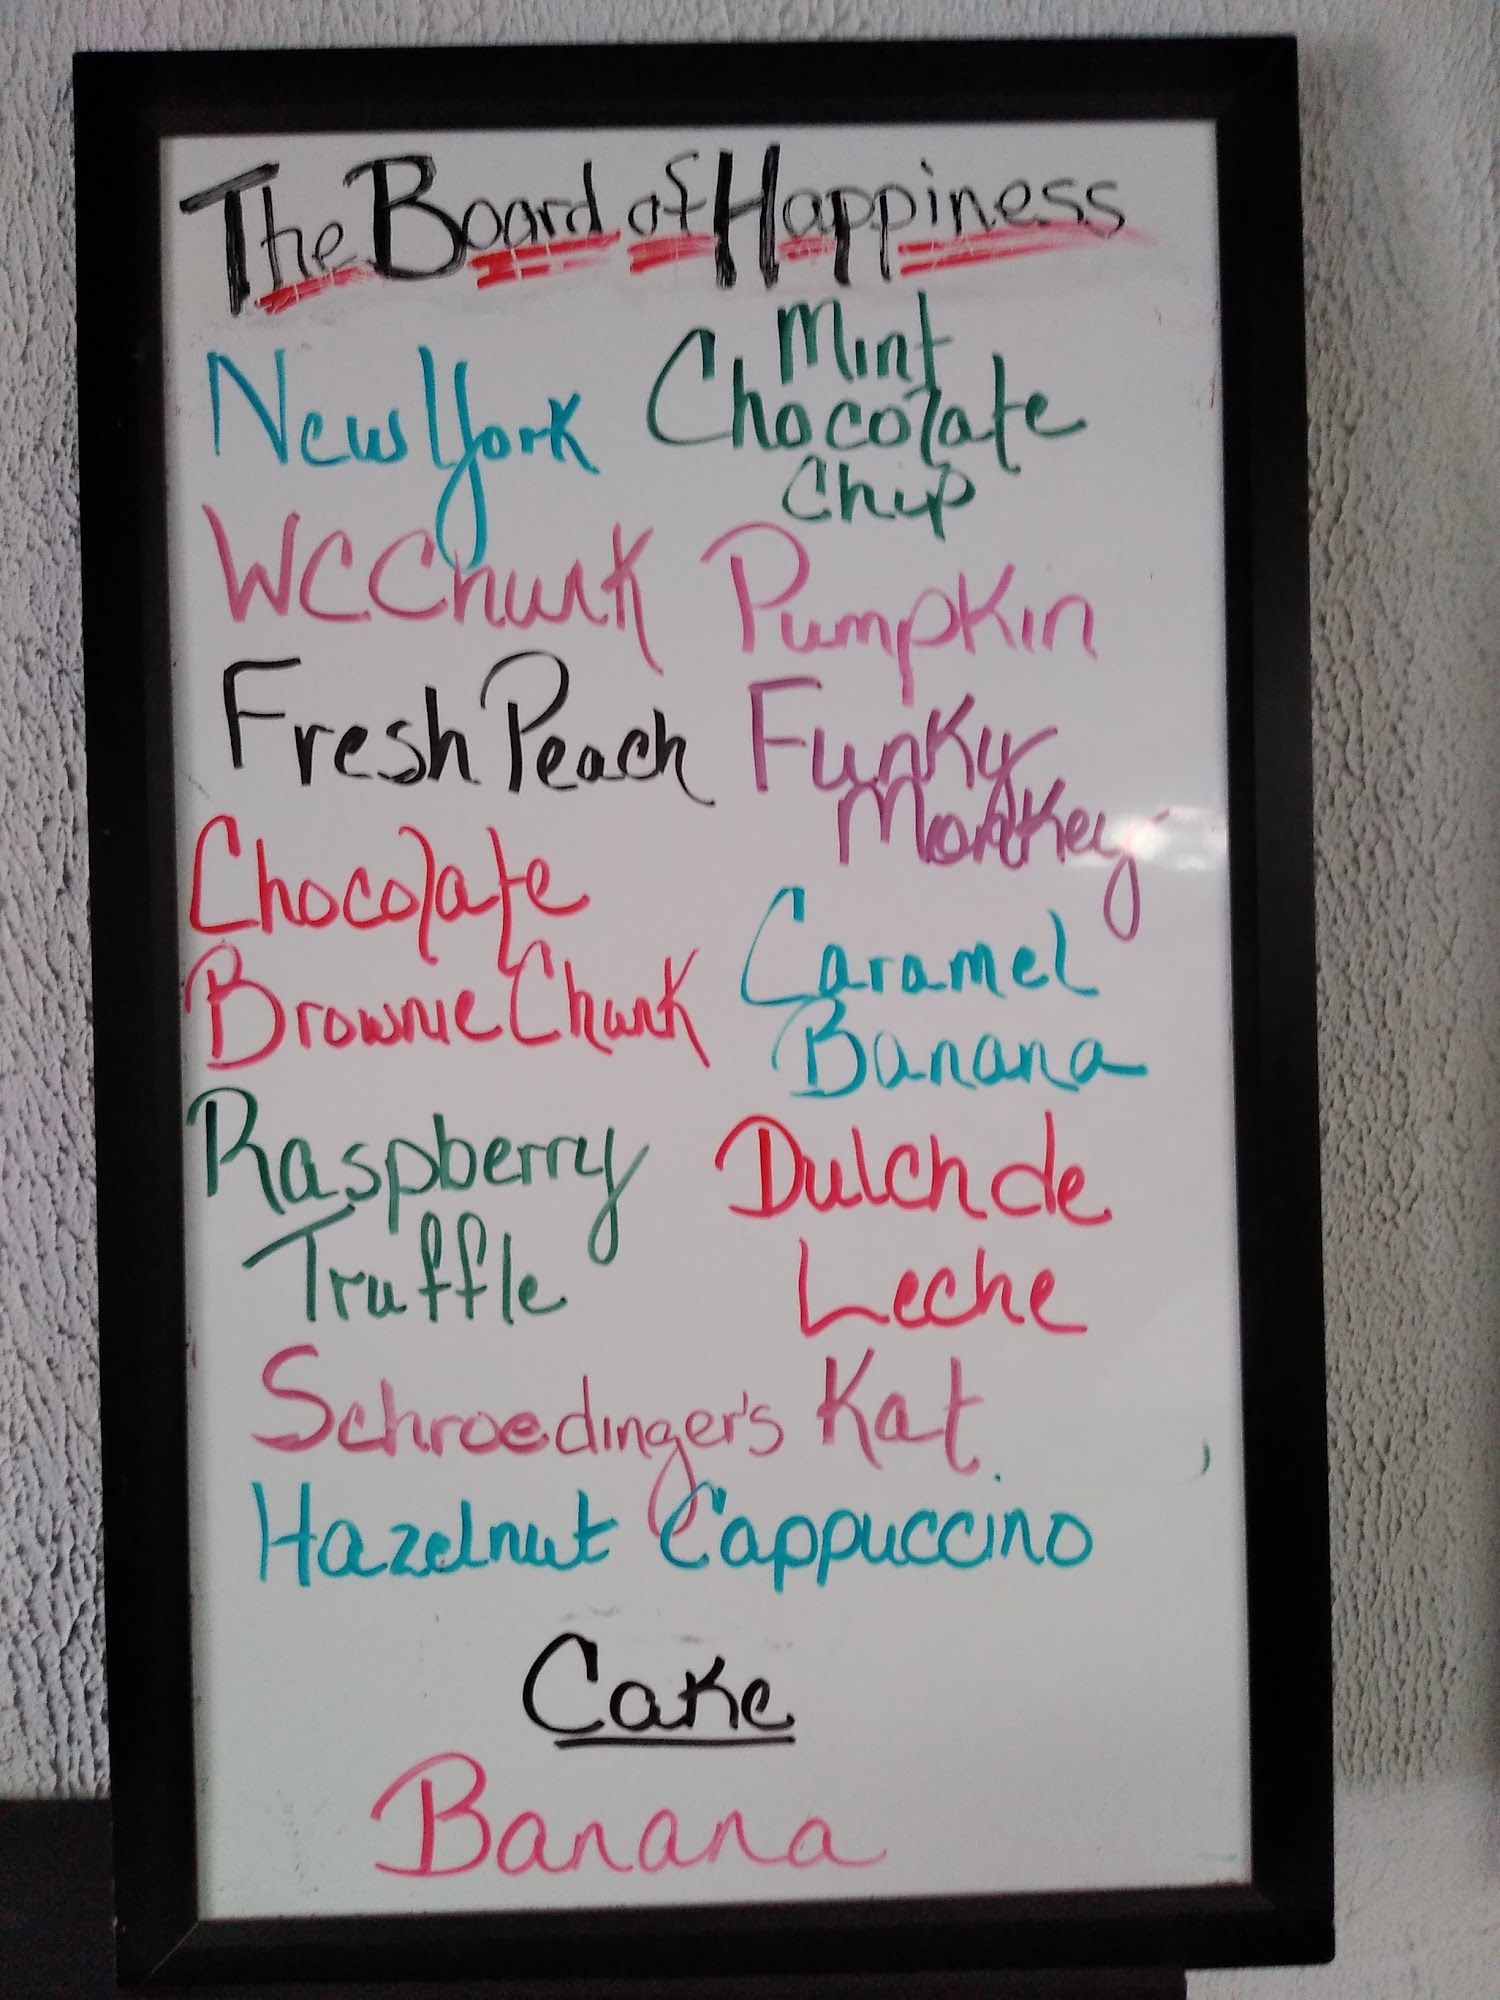 The Board of Happiness
New York
WC Chunk
Fresh Peach
Chocolate
Brownie Chunk
Raspberry
Truffle
Mint
Chocolate
Chip
Pumpkin
Funky
Monkey
Caramel
Banana
Dulch de
Leche
Schroedinger's Kat
Hazelnut Cappuccino
Cake
Banana